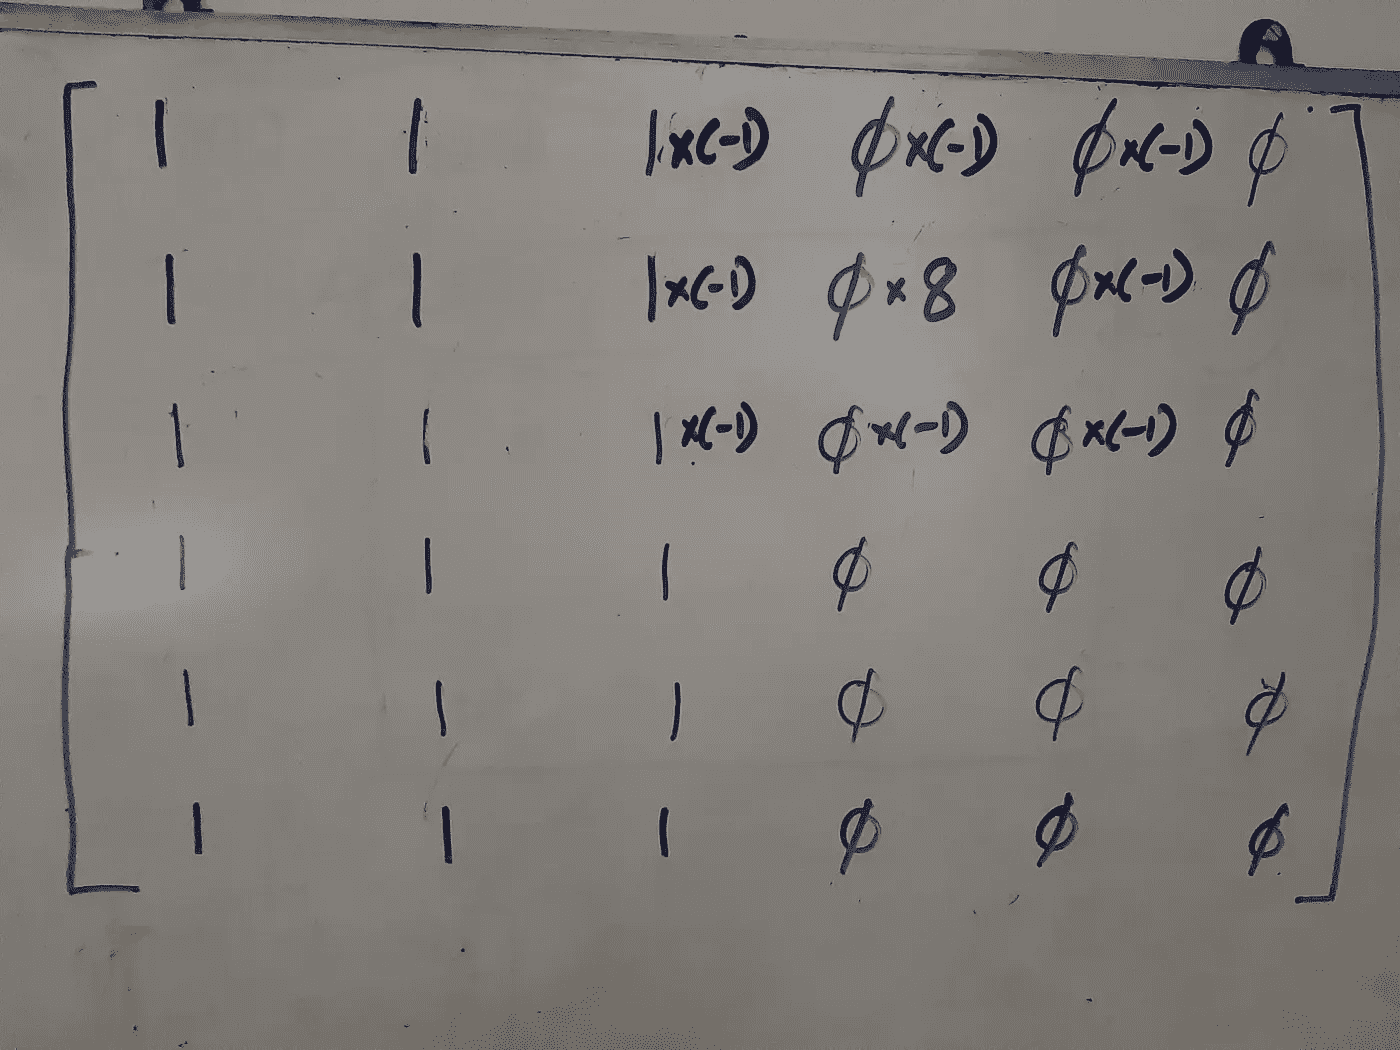 1 1 1×(-1) ϕ×(-1) ϕ×(-1) ϕ
1 1 1×(-1) ϕ×8 ϕ×(-1) ϕ
1 1 1×(-1) ϕ×(-1) ϕ×(-1) ϕ
1 1 1 ϕ ϕ ϕ
1 1 1 ϕ ϕ ϕ
1 1 1 ϕ ϕ ϕ